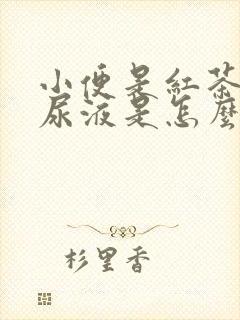 小便是紅茶
尿液是怎麼
杉里香